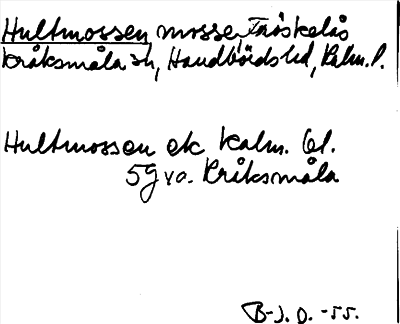 Hultmossen mosse, Fröskelås
Kråksmåla sn, Handbörds hd, Kalm. l.
Hultmossen ek kalm. bl.
5g va. Kråksmåla
B-J. O. -55.